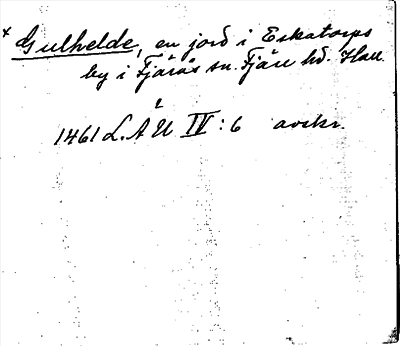 x Gulhelde, en jord i Eskatorps
by i Fjärås sn. Fjäre hd. Hall.
i
1461 L.A U IV:6 avskr.